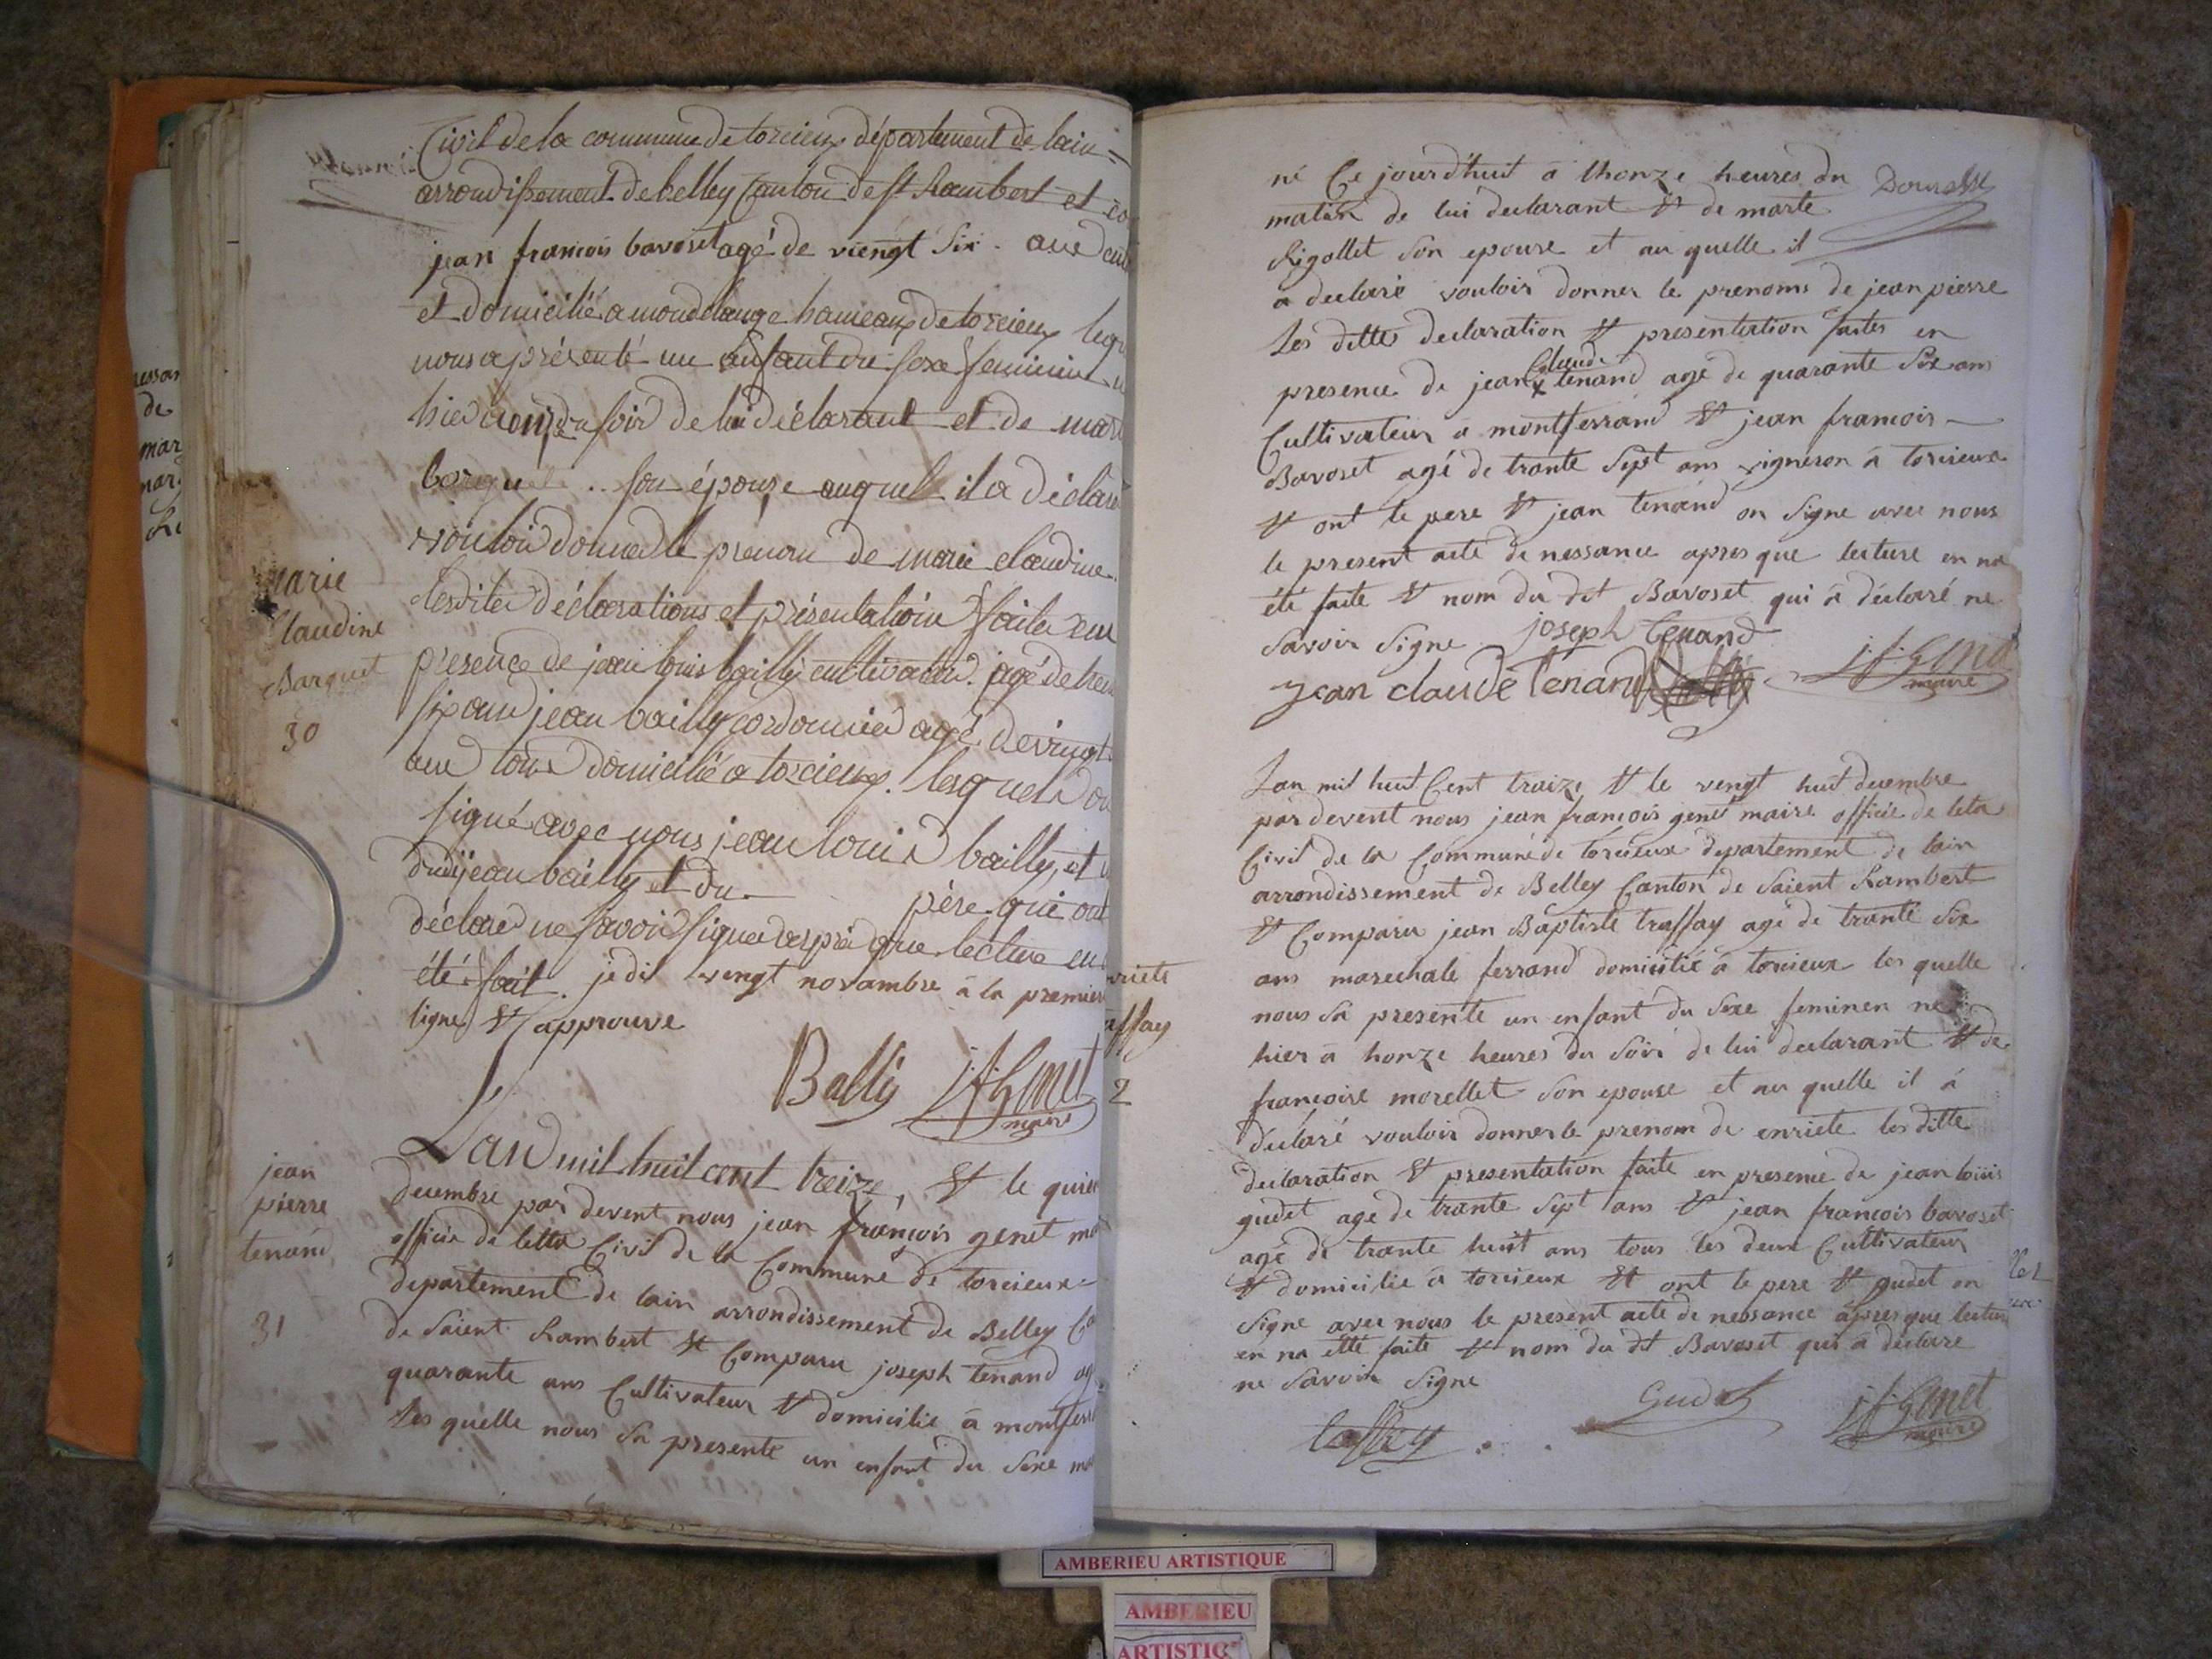 Civil de la commune de torcieux département de lain
arrondissement de belley Canton de st Rambert et
jean francois bavoset agé de viengt six ans
et domicilié a mondelange hameaux de torcieux
nous a présenté un enfant du sexe feminin
hier du soir de lui déclarant et de
son épouse auquel il a déclaré
vouloir donner le prenom de marie claudine
lesdites déclarations et présentation faites en
présence de jean louis bailly cultivateur agé de
six ans jean bailly cordonnier agé de vingt
ans tous domicilié a torcieux lesquels
signé avec nous jean louis bailly, et
dudi jean bailly et du père qui ont
déclaré ne savoir signer après que lecture en
été fait. je dit vengt novambre à la premier
ligne et approuve
Bally jf Genet
maire
marie
claudine
Barquet
30
Lan mil huit cent treize, et le
decembre par devent nous jean françois genet
officie de letta Civil de la Commune de torcieux
departement de lain arrondissement de Belley
de saient Rambert et Comparu joseph tenand
quarante ans Cultivateur et domicilie à
les quelle nous sa presente un enfant du sexe
jean
pierre
tenand
31
né Ce jourd'huit à lhonze heures du
matin de lui declarant et de marte
Rigollet son epouse et au quelle il
a declaré vouloir donner le prenoms de jean pierre
les ditte declaration et presentation faites en
presence de jean Claude tenand agé de quarante six ans
Cultivateur a montferrand et jean francois
Bavoset agé de trante sept ans vigneron à torcieux
et ont le pere et jean tenand on signe avec nous
le present acte de nessance apres que lecture en na
été faite et nom du dit Bavoset qui à déclaré ne
savoir signe joseph tenand
jean claude Tenand jf Genet
maire
Lan mil huit Cent traize et le vengt huit decembre
par devent nous jean françois genet maire officie de leta
Civil de la Commune de torcieux departement de lain
arrondissement de Belley Canton de saient Rambert
et Comparu jean Baptiste traffay agé de trante six
ans marechale ferrand domicilié à torcieux les quelle
nous sa presente un enfant du sexe feminen ne
hier à honze heures du soir de lui declarant et de
françoise morellet son epouse et au quelle il à
déclaré vouloir donner le prenom de enriete les ditte
declaration et presentation faite en presence de jean louis
gudet age de trante sept ans et jean francois bavoset
agé de trante huit ans tous les deux Cultivateur
et domicilie à torcieux et ont le pere et gudet on
signe avec nous le present acte de nessance apres que lecture
en na etté faite et nom du dit Bavoset qui a declare
ne savoir signe
Gudet jf Genet
maire
AMBERIEU ARTISTIQUE
AMBERIEU
ARTISTIQ